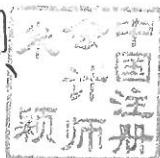 中国注册
会计师
颖